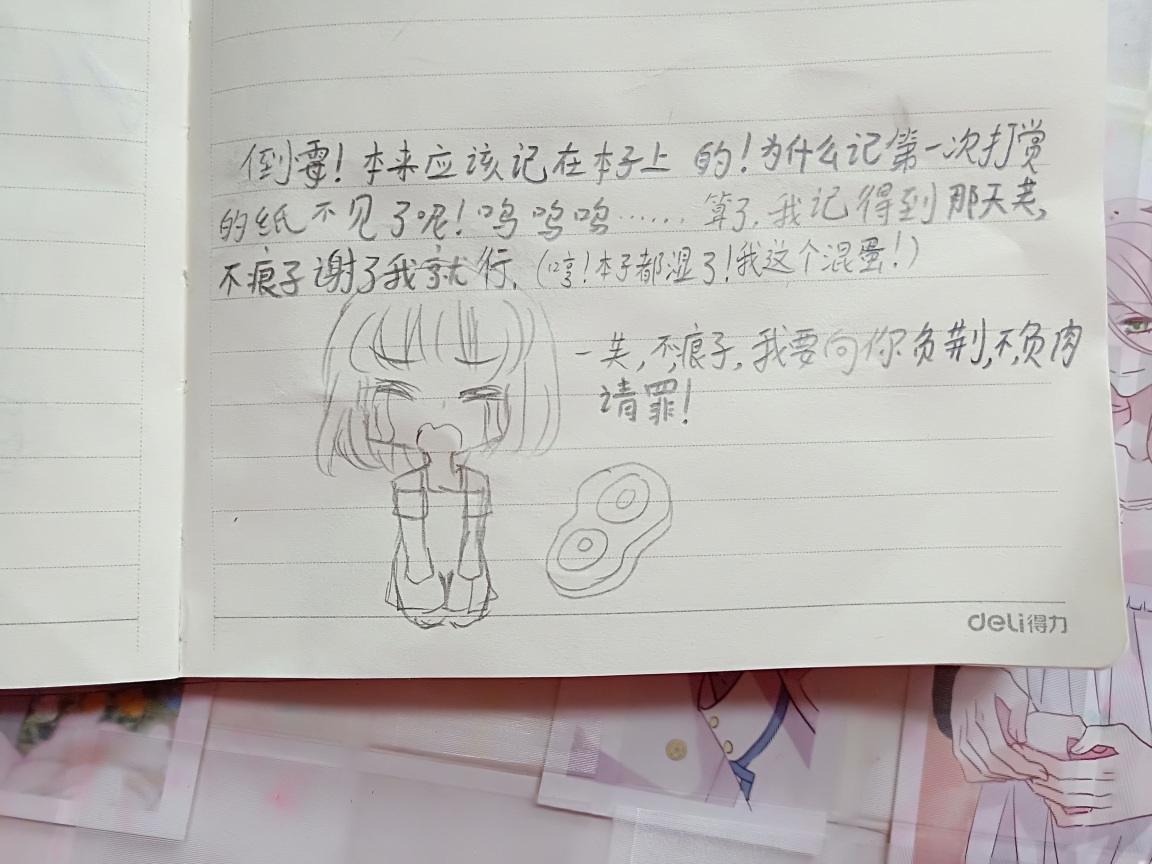 倒霉！本来应该记在本子上的！为什么记第一次打赏
的纸不见了呢！呜呜呜……算了，我记得到那天芙，
不痕子谢了我就行，（哼！本子都湿了！我这个混蛋！）
一芙，不，痕子，我要向你负荆，不，负肉
请罪！
deli得力